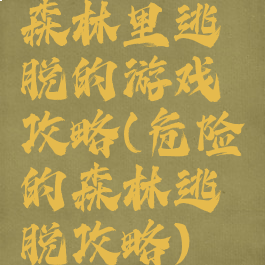 森林里逃
脱的游戏
攻略(危险
的森林逃
脱攻略)